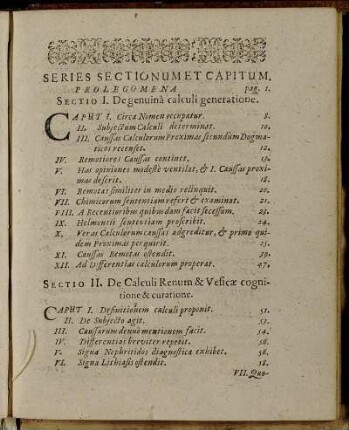 SERIES SECTIONUM ET CAPITUM.
PROLEGOMENA pag. 1.
SECTIO I. De genuinâ calculi generatione.
CAPUT I. Circa Nomen occupatur. 8.
II. Subjectum Calculi determinat. 10.
III. Caussas Calculorum Proximas secundùm Dogma-
ticos recenset. 12.
IV. Remotiores Caussas continet. 13.
V. Has opiniones modestè ventilat, & I. Caussas proxi-
mas deserit. 18.
VI. Remotas similiter in medio relinquit. 20.
VII. Chimicorum sententiam refert & examinat. 21.
VIII. A Recentioribus quibusdam facit secessum. 23.
IX. Helmontii sententiam proscribit. 24.
X. Veras Calculorum caussas adgreditur, & primò qui-
dem Proximas perquirit. 25.
XI. Caussas Remotas ostendit. 39.
XII. Ad Differentias calculorum properat. 47.
SECTIO II. De Calculi Renum & Vesicæ cogni-
tione & curatione.
CAPUT I. Definitionem calculi proponit. 51.
II. De Subjecto agit. 53.
III. Caussarum denuò mentionem facit. 54.
IV. Differentias breviter repetit. 56.
V. Signa Nephritidos diagnostica exhibet. 56.
VI. Signa Lithiasis ostendit. 58.
VII. Quo-